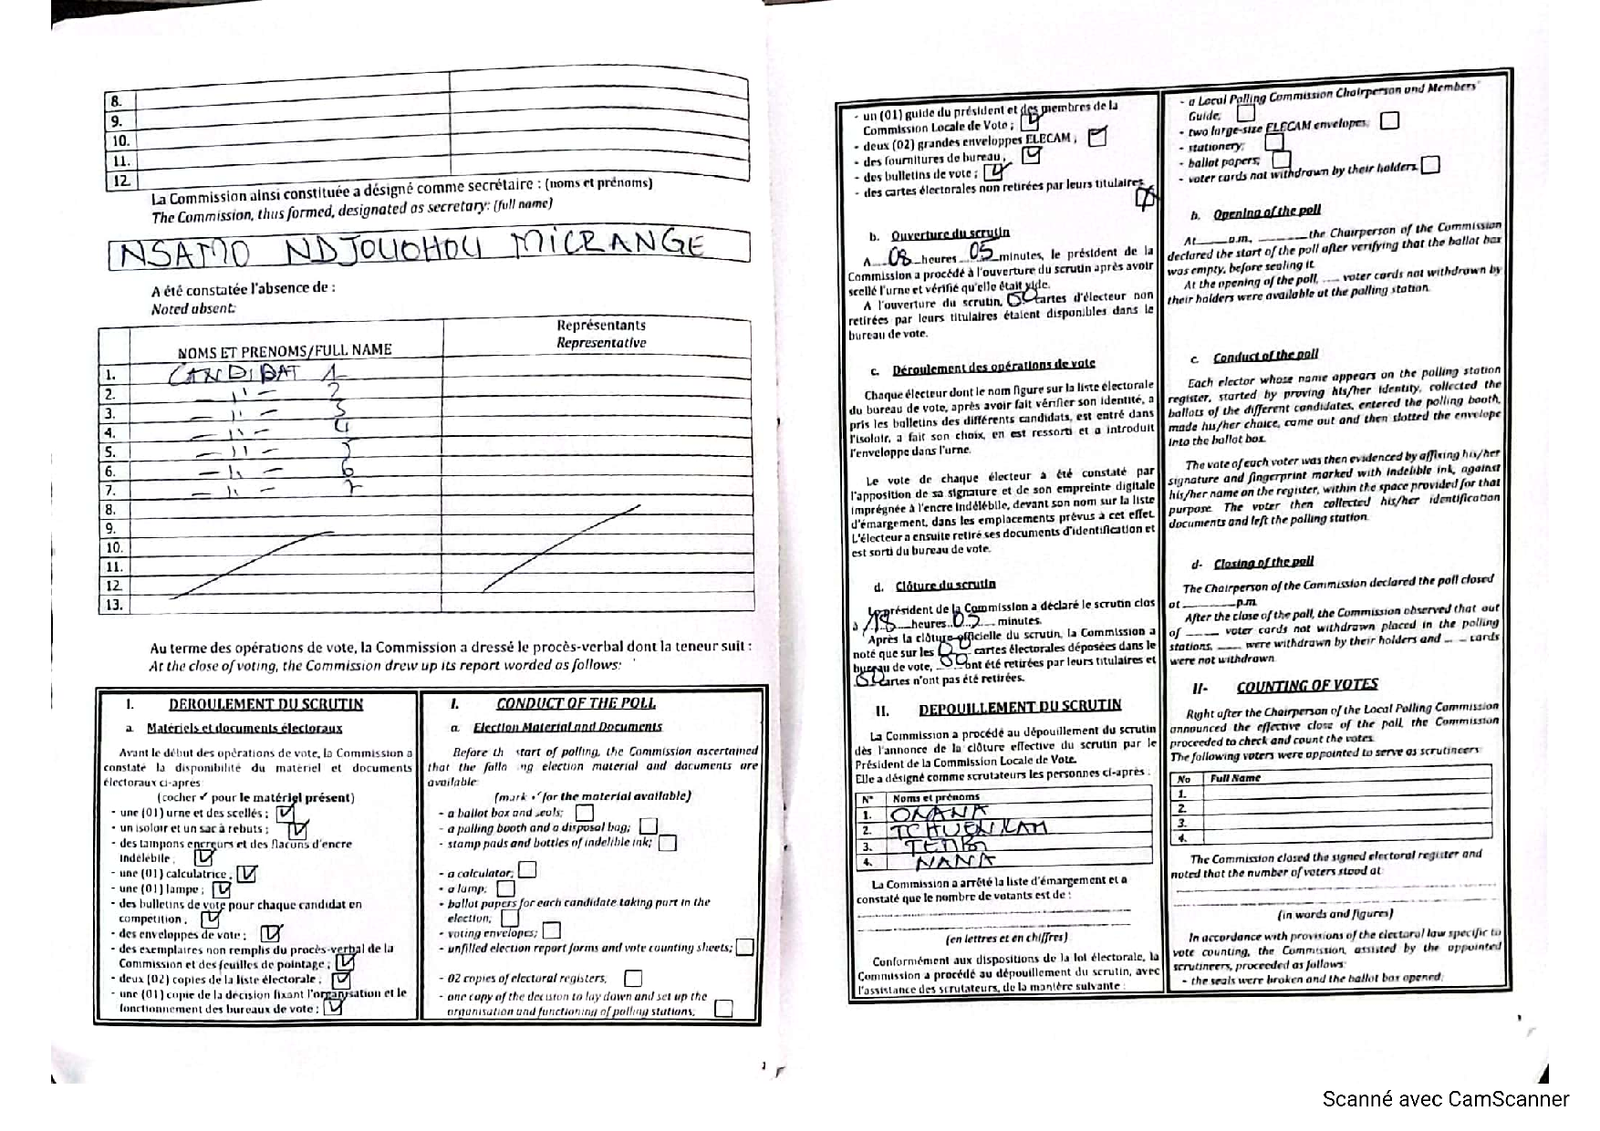 8.
9.
10.
11.
12.
La Commission ainsi constituée a désigné comme secrétaire : (noms et prénoms)
The Commission, thus formed, designated as secretary: (full name)
NSAMO NDJOUOHOU MICRANGE
A été constatée l'absence de :
Noted absent:
NOMS ET PRENOMS/FULL NAME
Représentants
Representative
1. CANDIDAT 1
2. — 11 — 2
3. — 11 — 3
4. — 11 — 4
5. — 11 — 5
6. — 11 — 6
7. — 11 — 7
8.
9.
10.
11.
12.
13.
Au terme des opérations de vote, la Commission a dressé le procès-verbal dont la teneur suit :
At the close of voting, the Commission drew up its report worded as follows:
I. DEROULEMENT DU SCRUTIN
a. Matériels et documents électoraux
Avant le début des opérations de vote, la Commission a
constaté la disponibilité du matériel et documents
électoraux ci-après
(cocher ✓ pour le matériel présent)
- une (01) urne et des scellés ;
- un isoloir et un sac à rebuts ;
- des tampons encreurs et des flacons d'encre
indélébile ;
- une (01) calculatrice ;
- une (01) lampe ;
- des bulletins de vote pour chaque candidat en
compétition ;
- des enveloppes de vote ;
- des exemplaires non remplis du procès-verbal de la
Commission et des feuilles de pointage ;
- deux (02) copies de la liste électorale ;
- une (01) copie de la décision fixant l'organisation et le
fonctionnement des bureaux de vote ;
I. CONDUCT OF THE POLL
a. Election Material and Documents
Before th start of polling, the Commission ascertained
that the follo ng election material and documents are
available:
(mark ✓ for the material available)
- a ballot box and seals;
- a polling booth and a disposal bag;
- stamp pads and bottles of indelible ink;
- a calculator;
- a lamp;
- ballot papers for each candidate taking part in the
election;
- voting envelopes;
- unfilled election report forms and vote counting sheets;
- 02 copies of electoral registers,
- one copy of the decision to lay down and set up the
organisation and functioning of polling stations,
- un (01) guide du président et des membres de la
Commission Locale de Vote ;
- deux (02) grandes enveloppes ELECAM ;
- des fournitures de bureau ;
- des bulletins de vote ;
- des cartes électorales non retirées par leurs titulaires
b. Ouverture du scrutin
A 08 heures 05 minutes, le président de la
Commission a procédé à l'ouverture du scrutin après avoir
scellé l'urne et vérifié qu'elle était vide.
A l'ouverture du scrutin, 00 cartes d'électeur non
retirées par leurs titulaires étaient disponibles dans le
bureau de vote.
c. Déroulement des opérations de vote
Chaque électeur dont le nom figure sur la liste électorale
du bureau de vote, après avoir fait vérifier son identité, a
pris les bulletins des différents candidats, est entré dans
l'isoloir, a fait son choix, en est ressorti et a introduit
l'enveloppe dans l'urne.
Le vote de chaque électeur a été constaté par
l'apposition de sa signature et de son empreinte digitale
imprégnée à l'encre indélébile, devant son nom sur la liste
d'émargement, dans les emplacements prévus à cet effet.
L'électeur a ensuite retiré ses documents d'identification et
est sorti du bureau de vote.
d. Clôture du scrutin
Le président de la Commission a déclaré le scrutin clos
à 18 heures 05 minutes.
Après la clôture officielle du scrutin, la Commission a
noté que sur les 00 cartes électorales déposées dans le
bureau de vote, 00 ont été retirées par leurs titulaires et
00 cartes n'ont pas été retirées.
II. DEPOUILLEMENT DU SCRUTIN
La Commission a procédé au dépouillement du scrutin
dès l'annonce de la clôture effective du scrutin par le
Président de la Commission Locale de Vote.
Elle a désigné comme scrutateurs les personnes ci-après :
N° Noms et prénoms
1. ONANA
2. TCHUENKAM
3.
4. NANA
La Commission a arrêté la liste d'émargement et a
constaté que le nombre de votants est de :
(en lettres et en chiffres)
Conformément aux dispositions de la loi électorale, la
Commission a procédé au dépouillement du scrutin, avec
l'assistance des scrutateurs, de la manière suivante :
- a Local Polling Commission Chairperson and Members'
Guide;
- two large-size ELECAM envelopes;
- stationery;
- ballot papers;
- voter cards not withdrawn by their holders
b. Opening of the poll
At ____ a.m, ____ the Chairperson of the Commission
declared the start of the poll after verifying that the ballot box
was empty, before sealing it.
At the opening of the poll, .... voter cards not withdrawn by
their holders were available at the polling station.
c. Conduct of the poll
Each elector whose name appears on the polling station
register, started by proving his/her identity, collected the
ballots of the different candidates, entered the polling booth,
made his/her choice, came out and then slotted the envelope
into the ballot box.
The vote of each voter was then evidenced by affixing his/her
signature and fingerprint marked with indelible ink, against
his/her name on the register, within the space provided for that
purpose. The voter then collected his/her identification
documents and left the polling station.
d- Closing of the poll
The Chairperson of the Commission declared the poll closed
at ____ p.m.
After the close of the poll, the Commission observed that out
of ____ voter cards not withdrawn placed in the polling
stations, ____ were withdrawn by their holders and ____ cards
were not withdrawn
II- COUNTING OF VOTES
Right after the Chairperson of the Local Polling Commission
announced the effective close of the poll, the Commission
proceeded to check and count the votes.
The following voters were appointed to serve as scrutineers:
No Full Name
1.
2.
3.
4.
The Commission closed the signed electoral register and
noted that the number of voters stood at:
(in words and figures)
In accordance with provisions of the electoral law specific to
vote counting, the Commission, assisted by the appointed
scrutineers, proceeded as follows:
- the seals were broken and the ballot box opened;
Scanné avec CamScanner